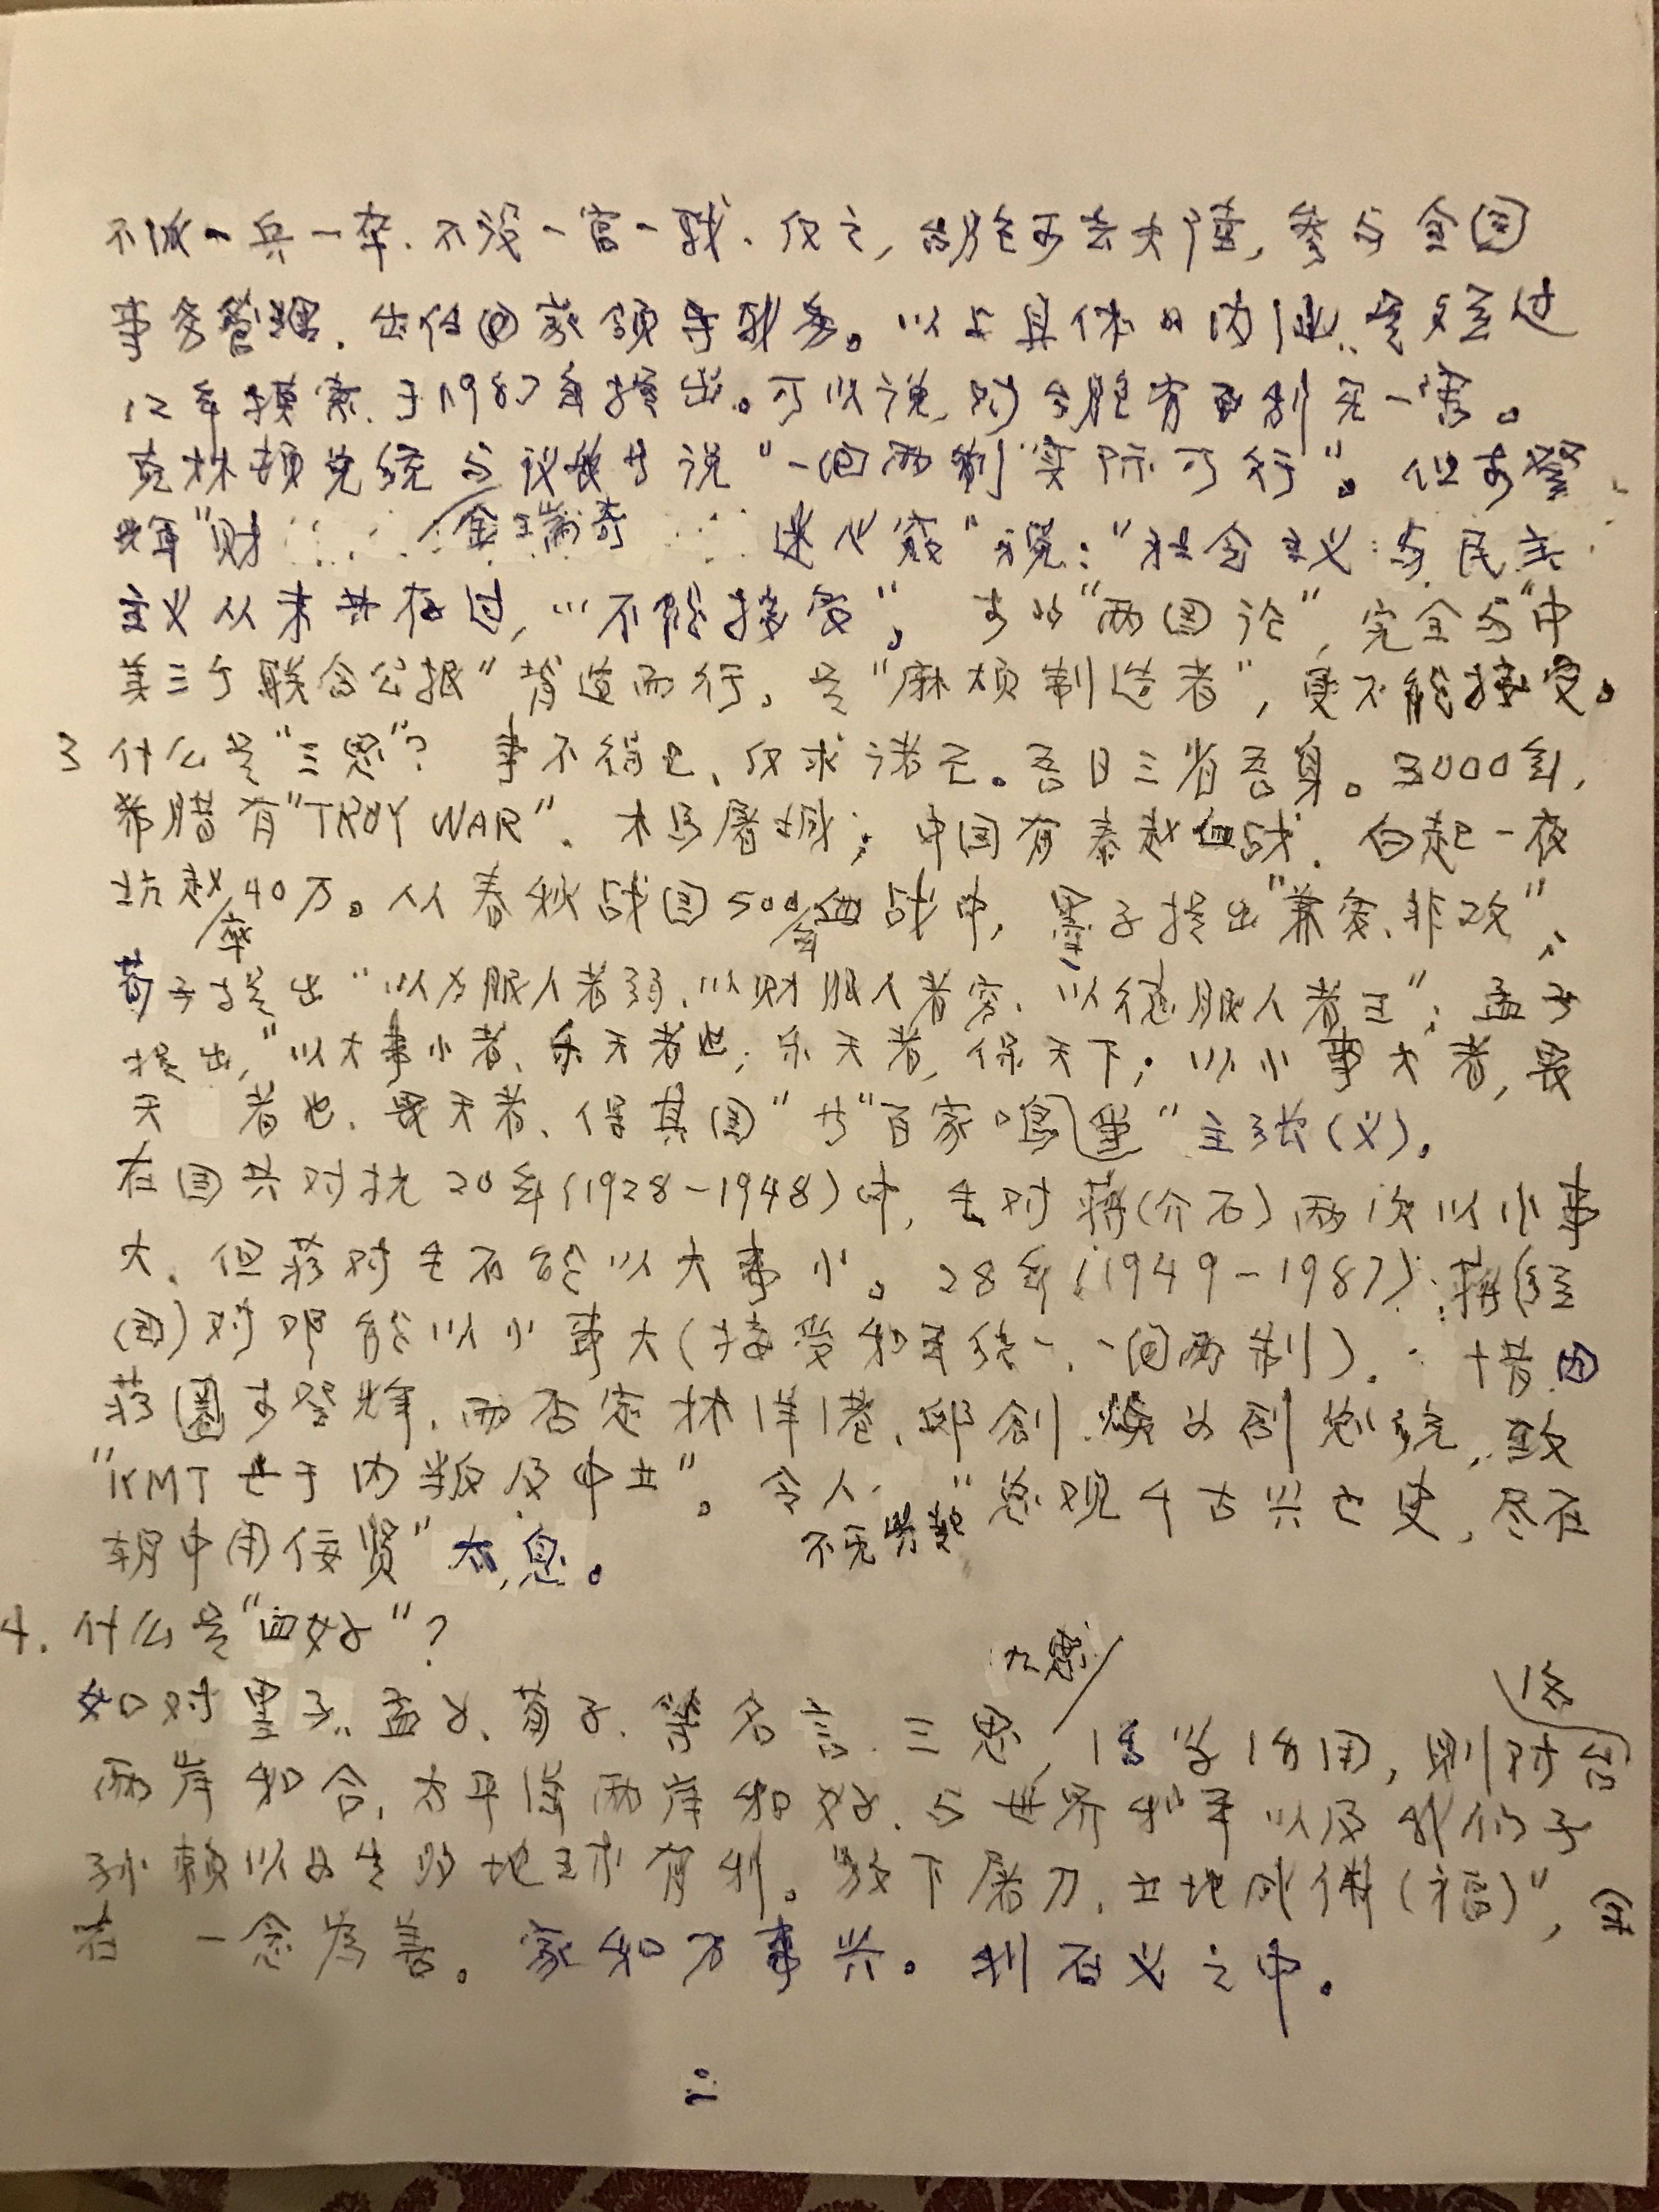 不派一兵一卒、不设一官一职、反之,台胞可去大陸,参与全国
事务管理,出任国家领导职务。以上具体的内涵,是经过
12年摸索,于1987年提出。可以说,对台胞有百利无一害。
克林顿总统与议长 说“一国两制实际可行”。但李登
金瑞奇
輝“财 迷心窍”说:“社会主义与民主
主义从未共存过,“不能接受”。李的“两国论”,完全与“中
美三个联合公报”背道而行。是“麻烦制造者”,更不能接受。
3 什么是“三思”? 事不得已、反求诸己。吾日三省吾身。3000年,
希腊有“TROY WAR”.木马屠城;中国有秦赵血战.白起一夜
坑赵 40万。从春秋战国500 血战中,墨子提出“兼爱、非攻”、
卒 年
荀子提出“以力服人者弱、以财服人者穷、以德服人者王”;孟子
提出,“以大事小者、乐天者也;乐天者,保天下;以小事大者,畏
天 者也.畏天者、保其国” “百家鳴 ”主张(义)。
在国共对抗20年(1928-1948)中,毛对蒋(介石)两次以小事
大、但蒋对毛不能以大事小。28年(1949-1987),蒋(经
国)对邓能以小事大(接受和平统一、一国两制)。惜因
蒋圈李登輝,而否定林洋港、邱創焕为副总统,致
“KMT亡于内叛及中立”。令人 “总观千古兴亡史,尽在
不无
朝中用佞贤”太息。
4.什么是“四好”?
九思 洛
如对墨子、孟子、荀子、等名言.三思,活学活用,則对台
两岸和合,太平洋两岸和好、与世界和平以及我们子
孙赖以为生的地球有利。“放下屠刀,立地成佛(福)”,全
在 一念为善。家和万事兴。利在义之中。